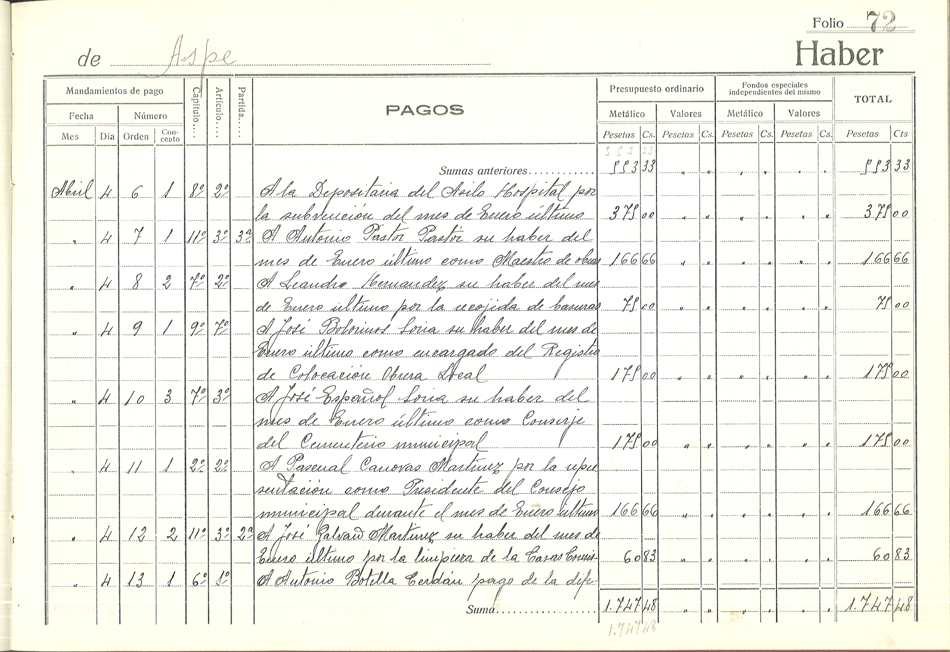 Folio 72
de Aspe Haber
Mandamientos de pago Capítulo.... Artículo.... Partida.... PAGOS Presupuesto ordinario Fondos especiales independientes del mismo TOTAL
Fecha Número Metálico Valores Metálico Valores
Mes Día Orden Concepto Pesetas Cs. Pesetas Cs. Pesetas Cs. Pesetas Cs. Pesetas Cts
553 33
Sumas anteriores 553 33 " " " " " " 553 33
Abril 4 6 1 8º 2º A la Depositaria del Asilo Hospital por
la subvención del mes de Enero último 375 00 " " " " " " 375 00
" 4 7 1 11º 3º 3ª A Antonio Pastor Pastor su haber del
mes de Enero último como Maestro de obras 166 66 " " " " " " 166 66
" 4 8 2 7º 2º A Leandro Hernandez su haber del mes
de Enero último por la recojida de basuras 75 00 " " " " " " 75 00
" 4 9 1 9º 7º A José Bolorinos Soria su haber del mes de
Enero último como encargado del Registro
de Colocación Obrera Local 175 00 " " " " " " 175 00
" 4 10 3 7º 3º A José Español Soria su haber del
mes de Enero último como Conserje
del Cementerio municipal 175 00 " " " " " " 175 00
" 4 11 1 2º 2º A Pascual Canovas Martinez por la repre
sentación como Presidente del Consejo
municipal durante el mes de Enero último 166 66 " " " " " " 166 66
" 4 12 2 11º 3º 2ª A José Galvañ Martinez su haber del mes de
Enero último por la limpieza de la Casas Consis- 60 83 " " " " " " 60 83
" 4 13 1 6º 1º A Antonio Botella Cerdán pago de la dife-
Suma 1.747 48 " " " " " " 1.747 48
1.747 48